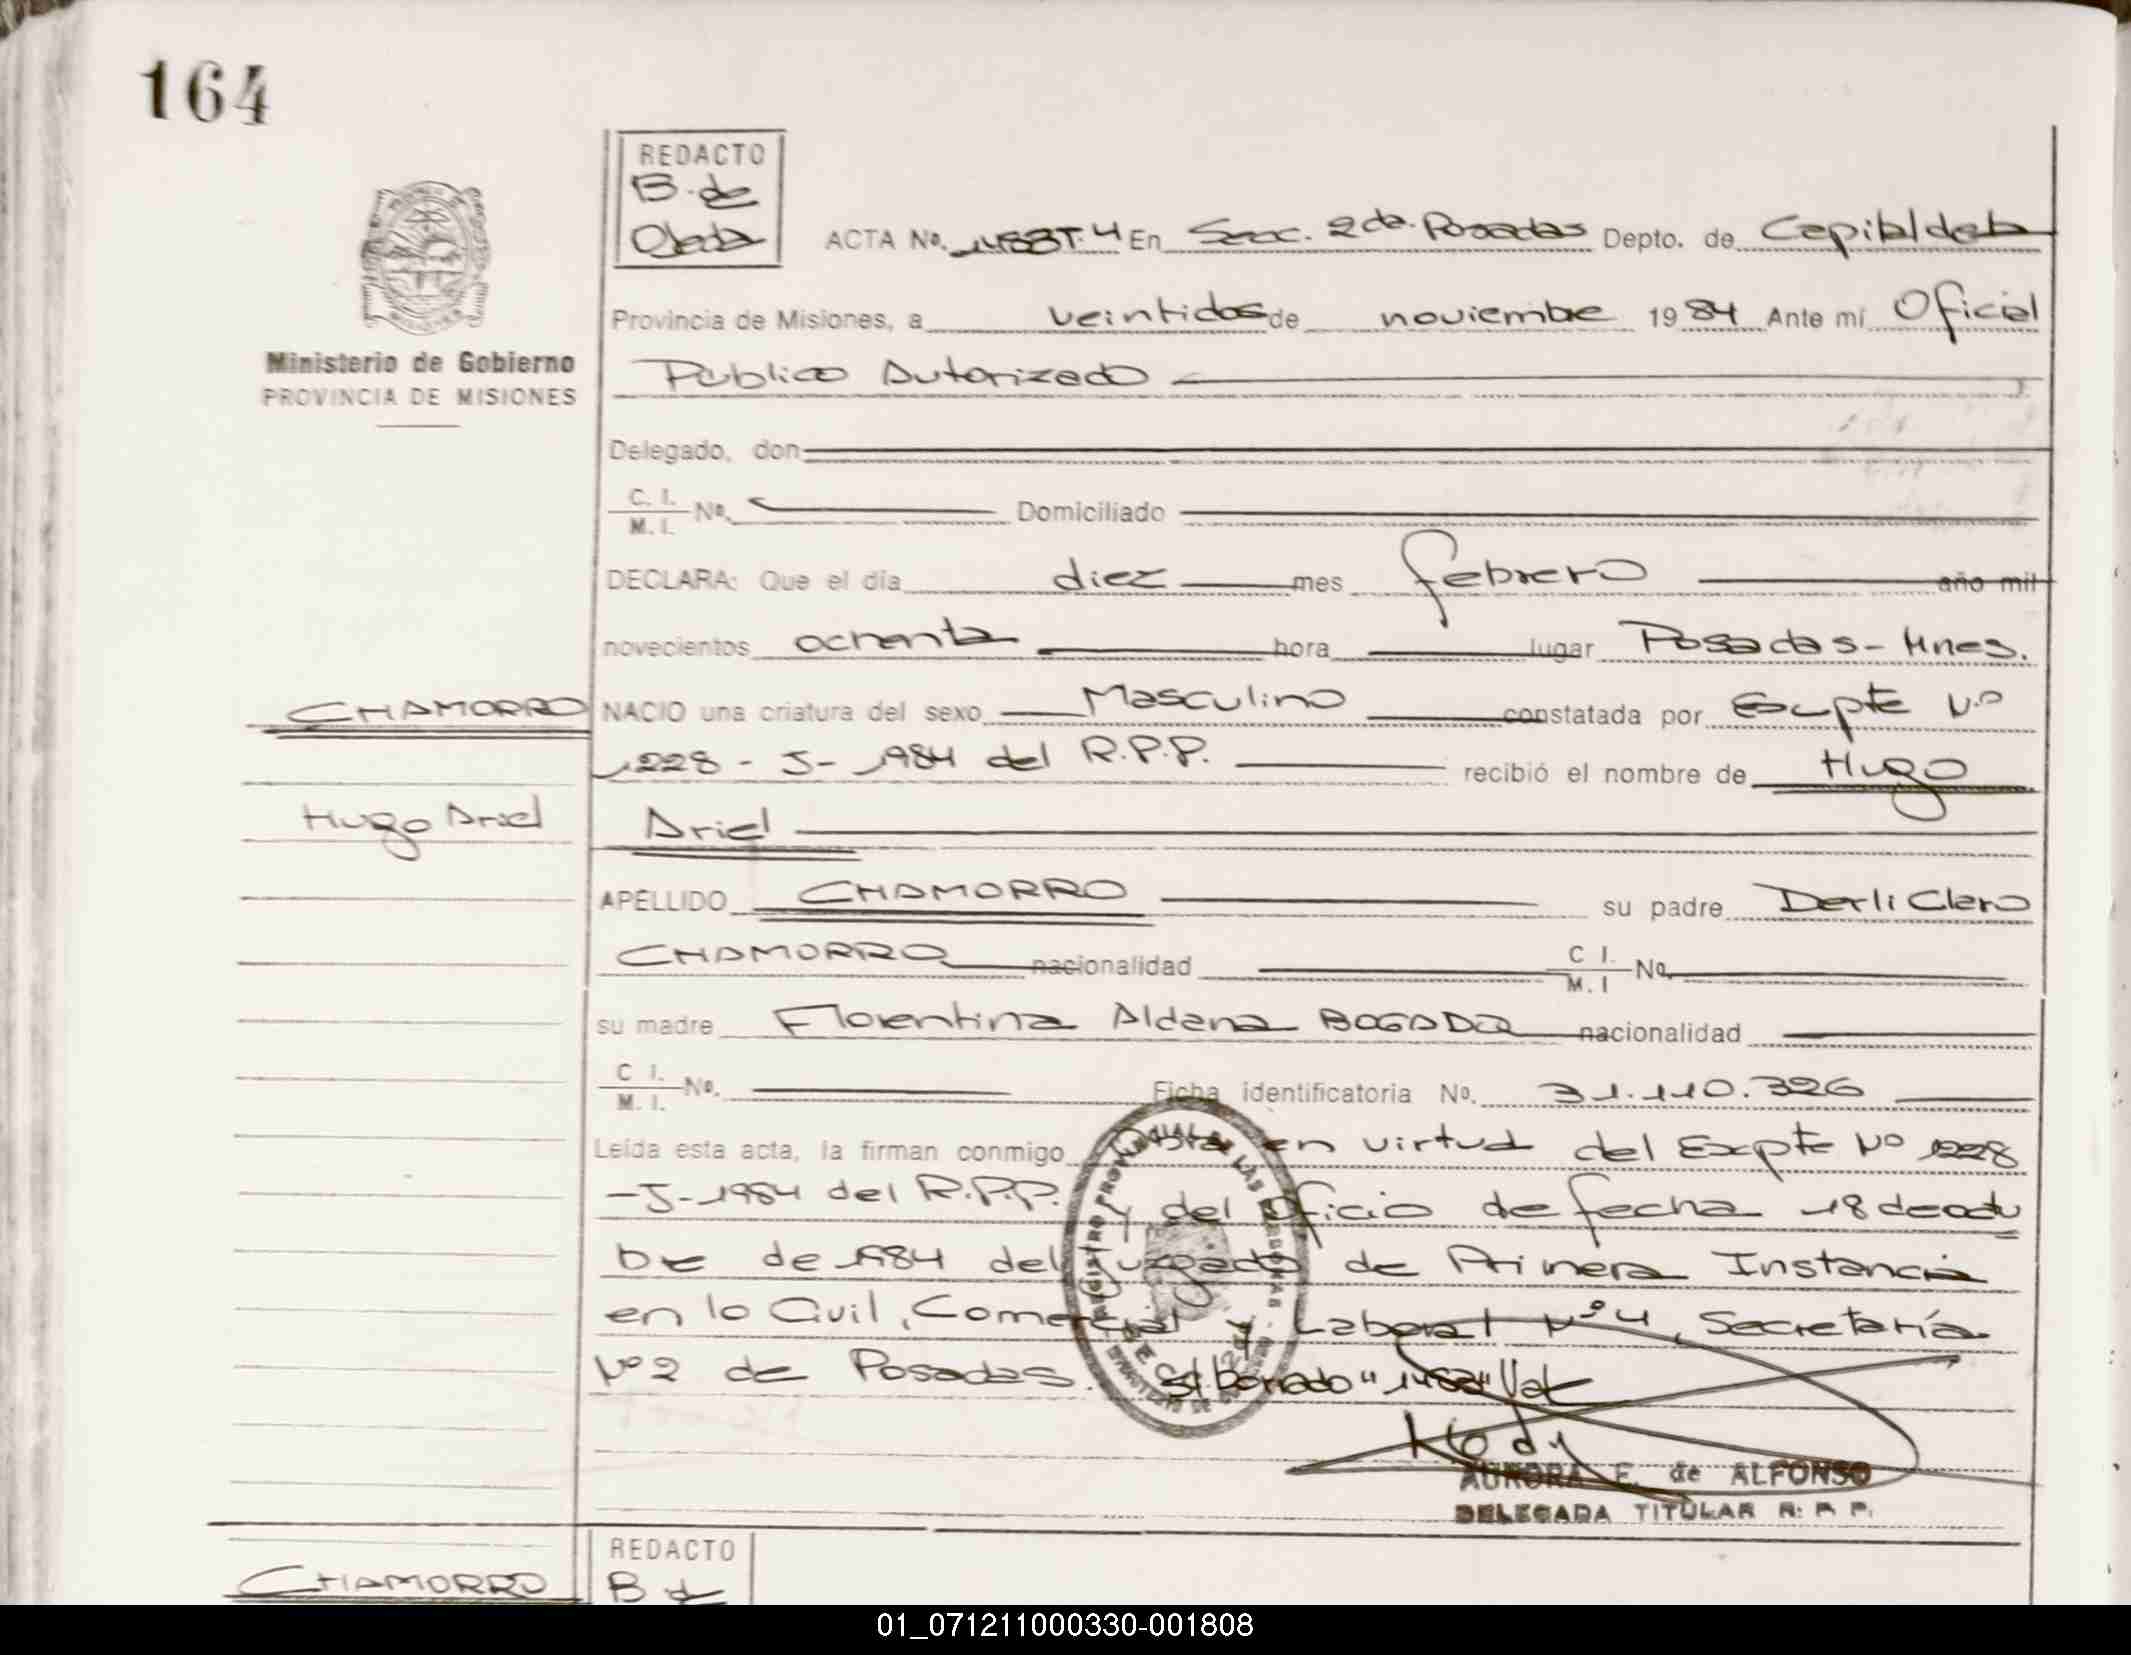 164
REDACTO
B. de
Ojeda
ACTA No. T. 4 En Secc. 2da. Posadas Depto. de Capital de la
Provincia de Misiones, a veintidos de noviembre 1984 Ante mí Oficial
Ministerio de Gobierno
Publico Autorizado
PROVINCIA DE MISIONES
Delegado, don
C. I.
M. I. No. Domiciliado
DECLARA: Que el día diez mes febrero año mil
novecientos ochenta hora lugar Posadas - Mnes.
CHAMORRO NACIO una criatura del sexo Masculino constatada por Expte Nº
1228 - J - 1984 del R.P.P. recibió el nombre de Hugo
Hugo Ariel Ariel
APELLIDO CHAMORRO su padre Derli Claro
CHAMORRO nacionalidad C I. M. I No.
su madre Florentina Aldana BOGADO nacionalidad
C I. M. I. No. Ficha identificatoria No. 31.110.326
Leída esta acta, la firman conmigo en virtud del Expte Nº 1228
- J - 1984 del R.P.P. y del Oficio de fecha 18 de octu
bre de 1984 del Juzgado de Primera Instancia
en lo Civil, Comercial y Laboral Nº 4, Secretaría
Nº 2 de Posadas. S/borrado " " Vale
AURORA F. de ALFONSO
DELEGADA TITULAR R. P. P.
REDACTO
CHAMORRO B de
01_071211000330-001808